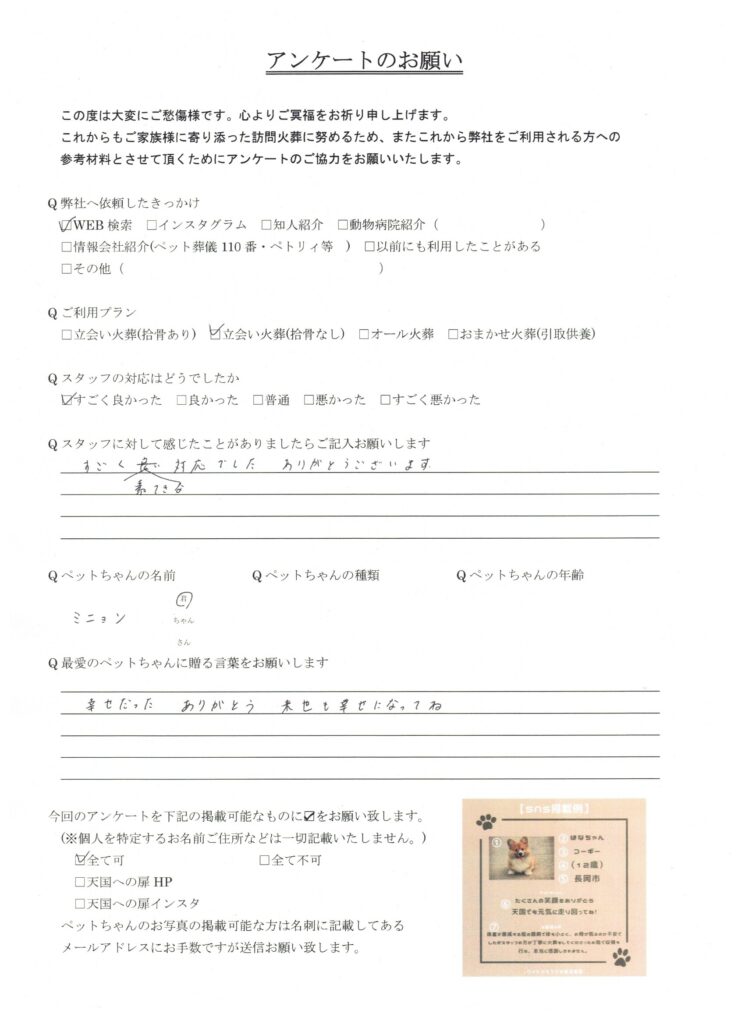 アンケートのお願い
この度は大変にご愁傷様です。心よりご冥福をお祈り申し上げます。
これからもご家族様に寄り添った訪問火葬に努めるため、またこれから弊社をご利用される方への
参考材料とさせて頂くためにアンケートのご協力をお願いいたします。
Q 弊社へ依頼したきっかけ
☑WEB 検索 □インスタグラム □知人紹介 □動物病院紹介（ ）
□情報会社紹介(ペット葬儀 110 番・ペトリィ等 ） □以前にも利用したことがある
□その他（ ）
Q ご利用プラン
□立会い火葬(拾骨あり) ☑立会い火葬(拾骨なし) □オール火葬 □おまかせ火葬(引取供養)
Q スタッフの対応はどうでしたか
☑すごく良かった □良かった □普通 □悪かった □すごく悪かった
Q スタッフに対して感じたことがありましたらご記入お願いします
すごく 対応でした ありがとうございます
素てきな
Q ペットちゃんの名前 Q ペットちゃんの種類 Q ペットちゃんの年齢
君
ミニョン ちゃん
さん
Q 最愛のペットちゃんに贈る言葉をお願いします
幸せだった ありがとう 来世も幸せになってね
今回のアンケートを下記の掲載可能なものに☑をお願い致します。
(※個人を特定するお名前ご住所などは一切記載いたしません。)
☑全て可 □全て不可
□天国への扉 HP
□天国への扉インスタ
ペットちゃんのお写真の掲載可能な方は名刺に記載してある
メールアドレスにお手数ですが送信お願い致します。
【sns掲載例】
① ② はなちゃん
③ コーギー
④ （12歳）
⑤ 長岡市
⑥ たくさんの笑顔をありがとう
天国でも元気に走り回ってね！
⑦